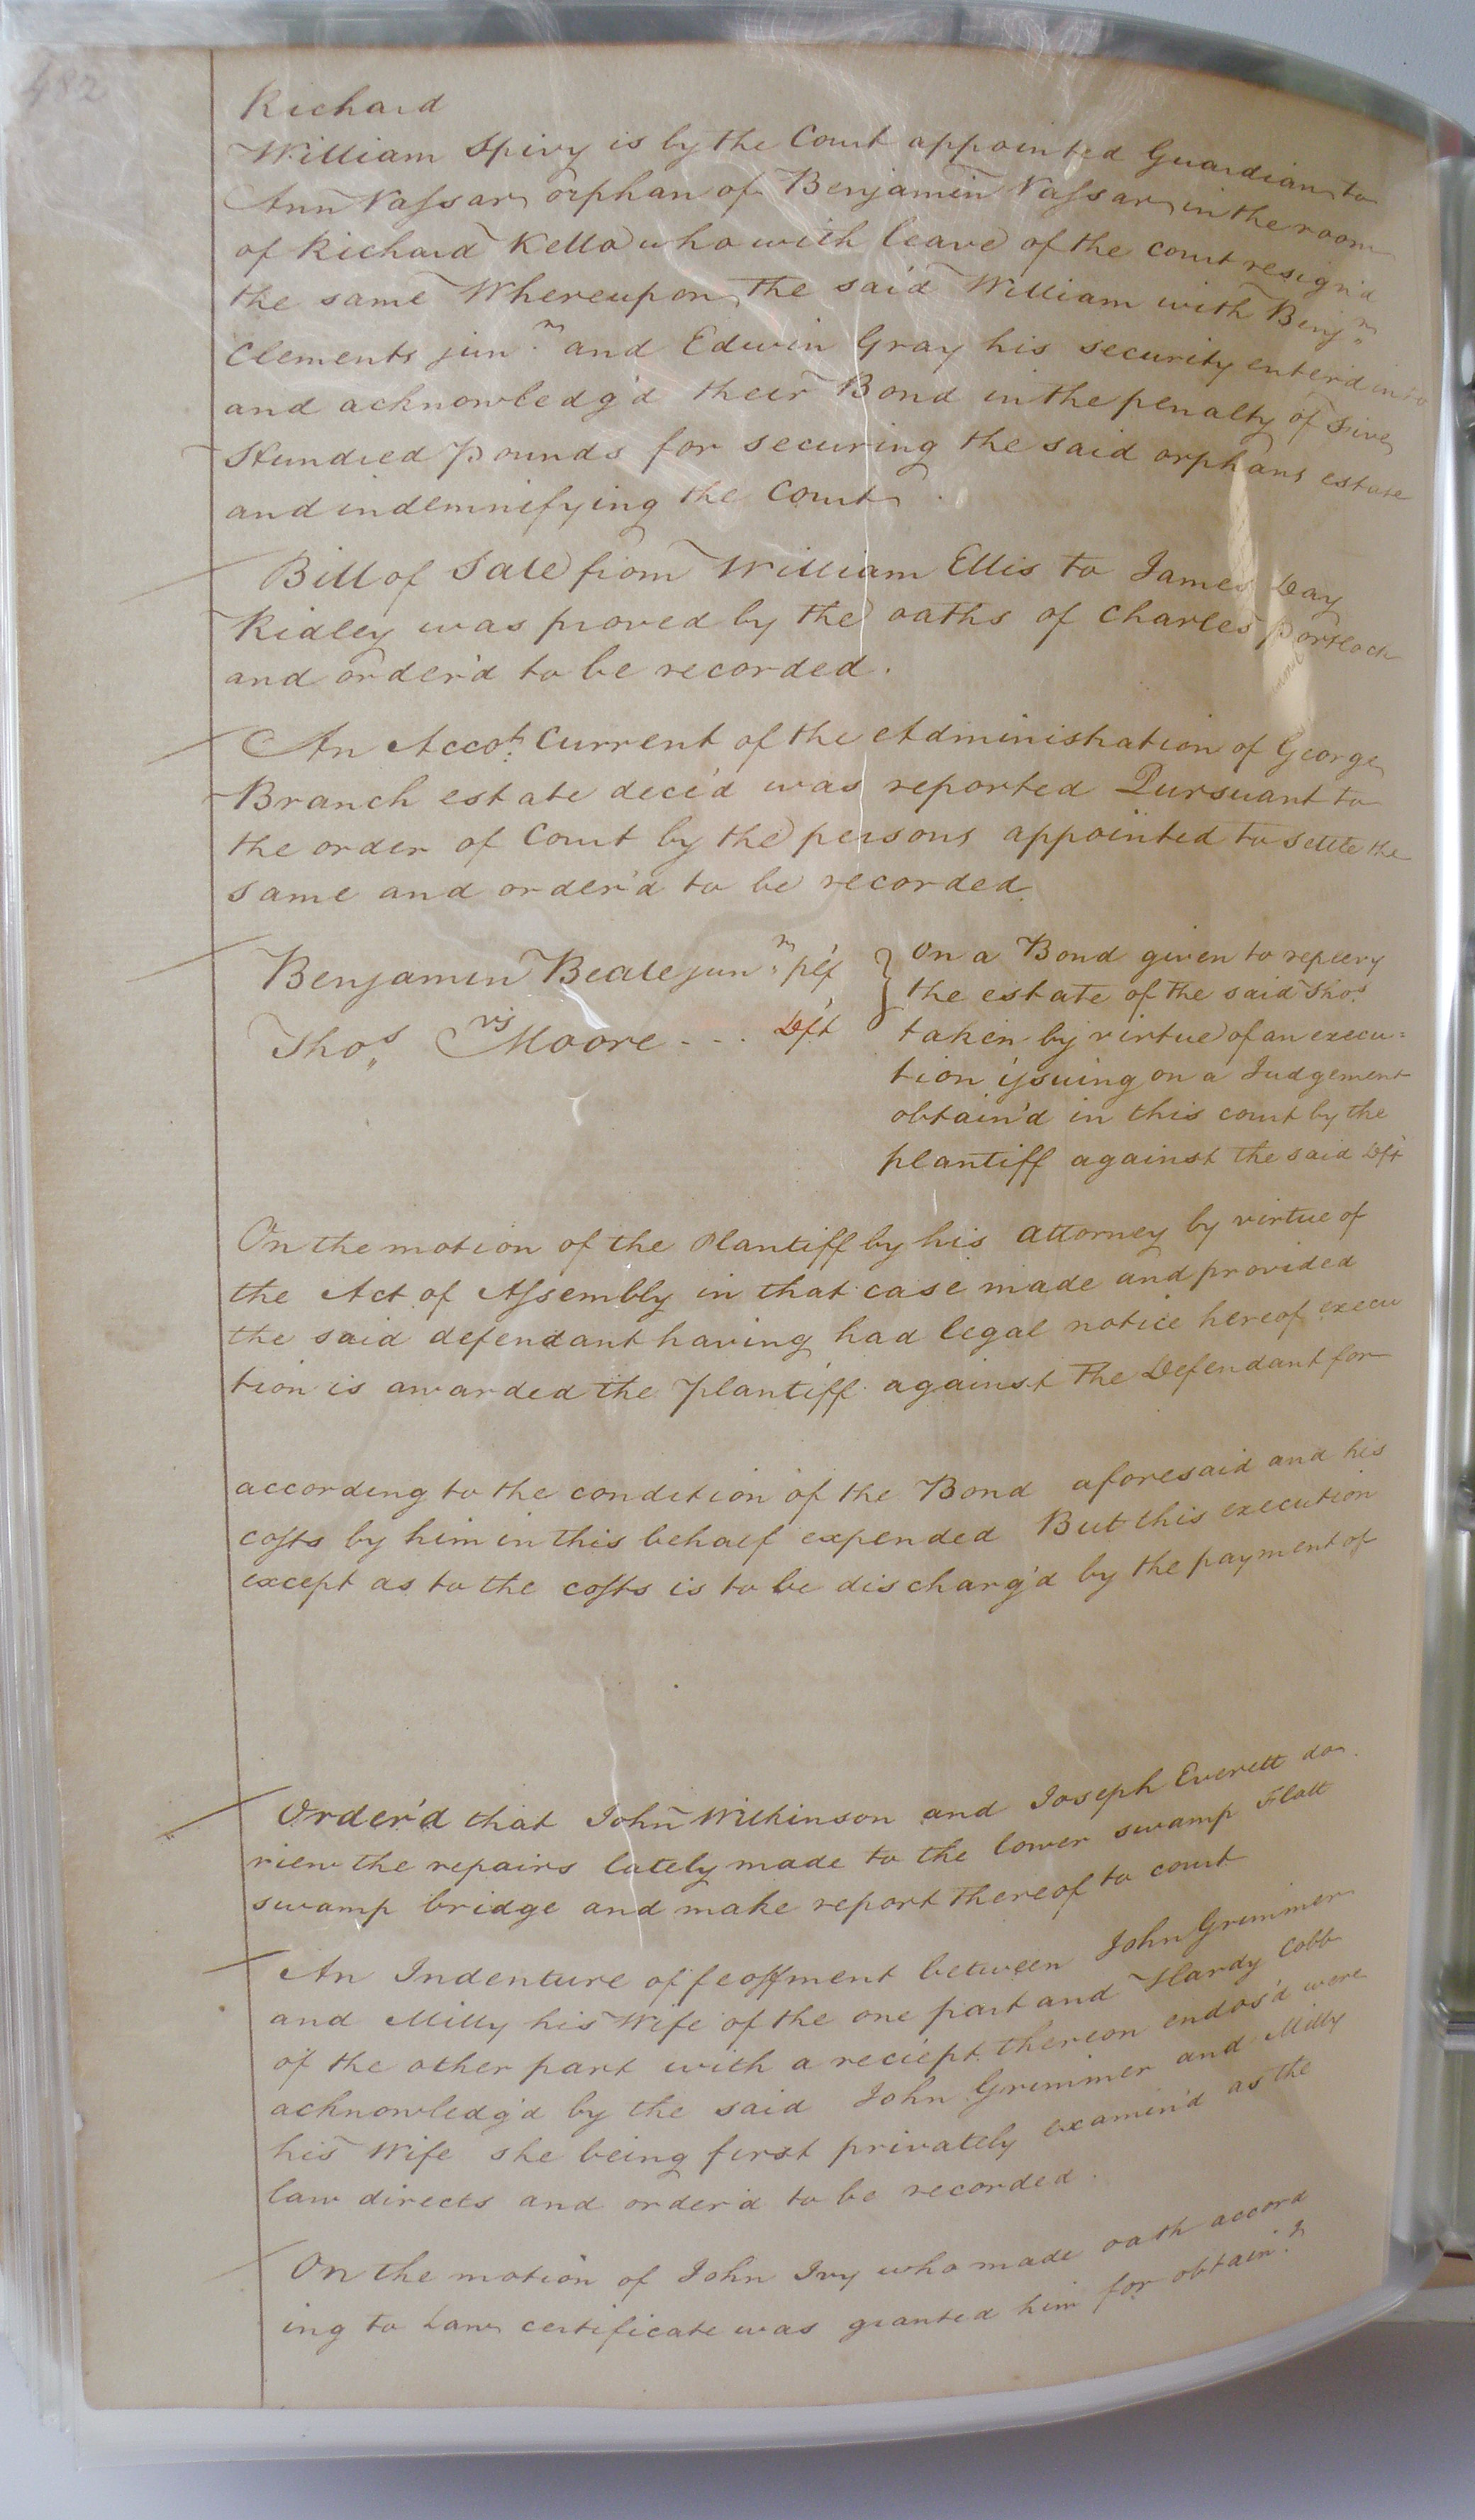 482
Richard
William Spivy is by the Court appointed Guardian to
Ann Vassar orphan of Benjamin Vassar in the room
of Richard Kello who with leave of the court resign'd
the same Whereupon the said William with Benjn
Clements junr and Edwin Gray his security enter'd into
and acknowledg'd their Bond in the penalty of Five
Hundred pounds for securing the said orphans estate
and indemnifying the Court.
Bill of Sale from William Ellis to James Day
Ridley was proved by the oaths of Charles Portlock
and order'd to be recorded.
An Accot. Current of the Administration of George
Branch estate dece'd was reported Pursuant to
the order of Court by the persons appointed to settle the
same and order'd to be recorded
Benjamin Beale junr plf
vs
Thos Moore - - . Dft
On a Bond given to replevy
the estate of the said Thos
taken by virtue of an execu=
tion issuing on a Judgement
obtain'd in this court by the
plantiff against the said Dft
On the motion of the Plantiff by his attorney by virtue of
the Act of Assembly in that case made and provided
the said defendant having had legal notice hereof execu
tion is awarded the plantiff against the Defendant for
according to the condition of the Bond aforesaid and his
costs by him in this behalf expended But this execution
except as to the costs is to be discharg'd by the payment of
Order'd that John Wilkinson and Joseph Everett do
view the repairs lately made to the lower swamp Flatt
swamp bridge and make report thereof to court
An Indenture of feoffment between John Grimmer
and Milly his Wife of the one part and Hardy Cobb
of the other part with a reciept thereon endos'd were
acknowledg'd by the said John Grimmer and Milly
his Wife she being first privately examin'd as the
law directs and order'd to be recorded.
On the motion of John Ivy who made oath accord
ing to Law certificate was granted him for obtain.g